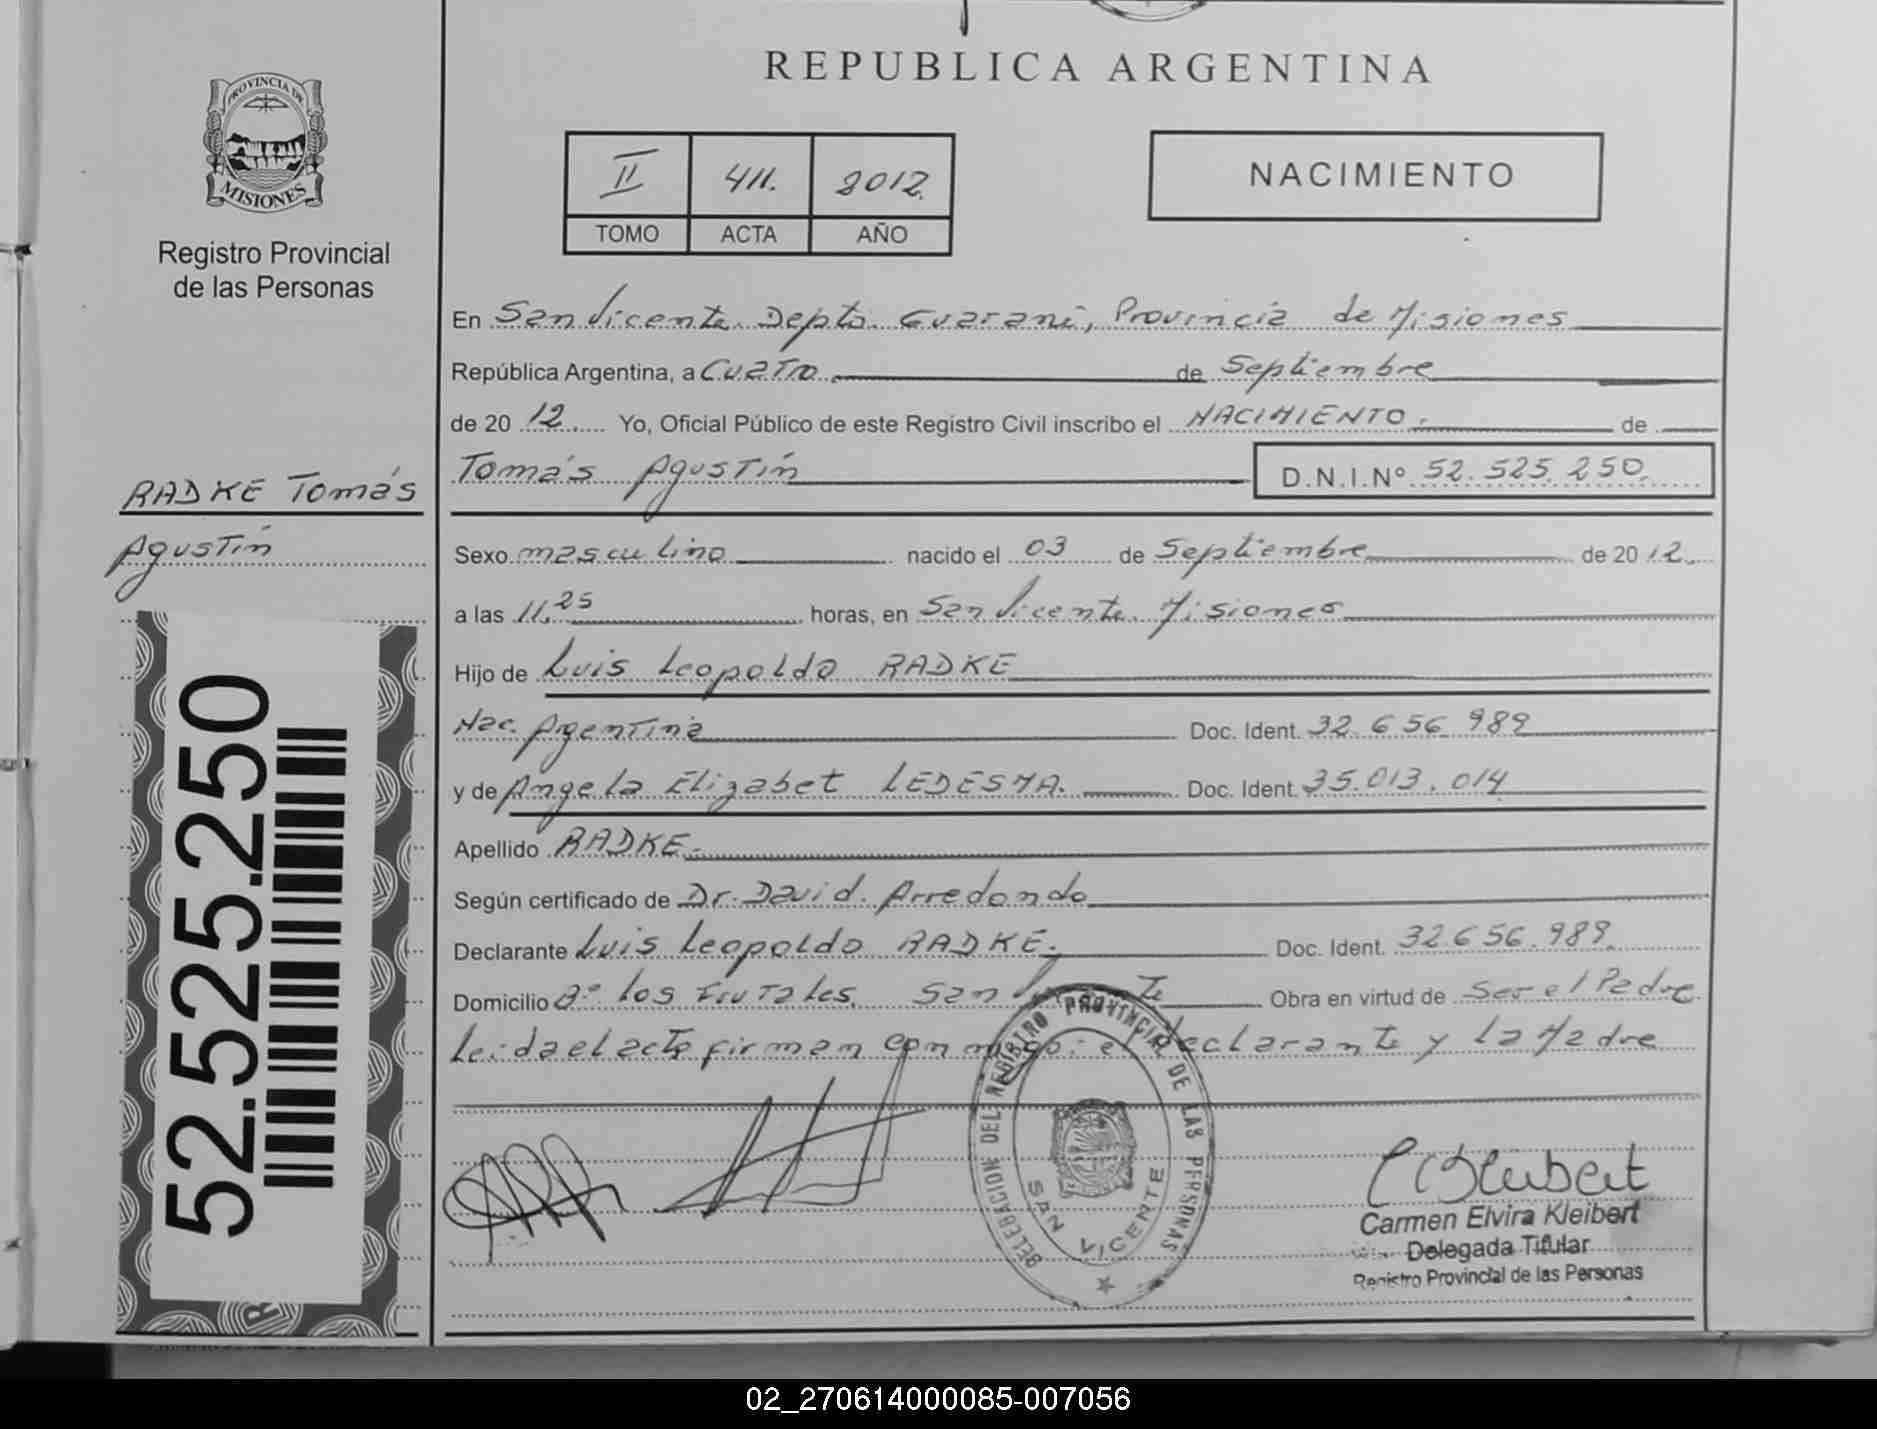 REPUBLICA ARGENTINA
PROVINCIA DE
MISIONES
Registro Provincial
de las Personas
II 411. 2012.
TOMO ACTA AÑO
NACIMIENTO
En San Vicente. Depto. Guaraní, Provincia de Misiones
República Argentina, a Cuatro. de Septiembre
de 20 12. Yo, Oficial Público de este Registro Civil inscribo el NACIMIENTO. de
RADKE Tomás
Agustín
Tomás Agustín D.N.I.Nº 52.525.250.
Sexo masculino nacido el 03 de Septiembre de 20 12.
a las 11,25 horas, en San Vicente. Misiones
Hijo de Luis Leopoldo RADKE
Nac. Argentina Doc. Ident. 32.656.989
y de Angela Elizabet LEDESMA. Doc. Ident. 35.013.014
Apellido RADKE.
Según certificado de Dr. David. Arredondo
Declarante Luis Leopoldo RADKE. Doc. Ident. 32.656.989.
Domicilio Bº los Frutales. San Obra en virtud de Ser el Padre
Leida el acta firman conmigo: el declarante y la Madre
52.525.250
DELEGACION DEL REGISTRO PROVINCIAL DE LAS PERSONAS
SAN VICENTE
Carmen Elvira Kleibert
Delegada Titular
Registro Provincial de las Personas
02_270614000085-007056